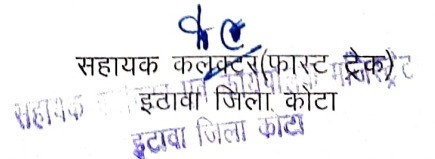 सहायक कलक्टर(फास्ट ट्रैक)
इटावा जिला कोटा
सहायक
इटावा जिला कोटा